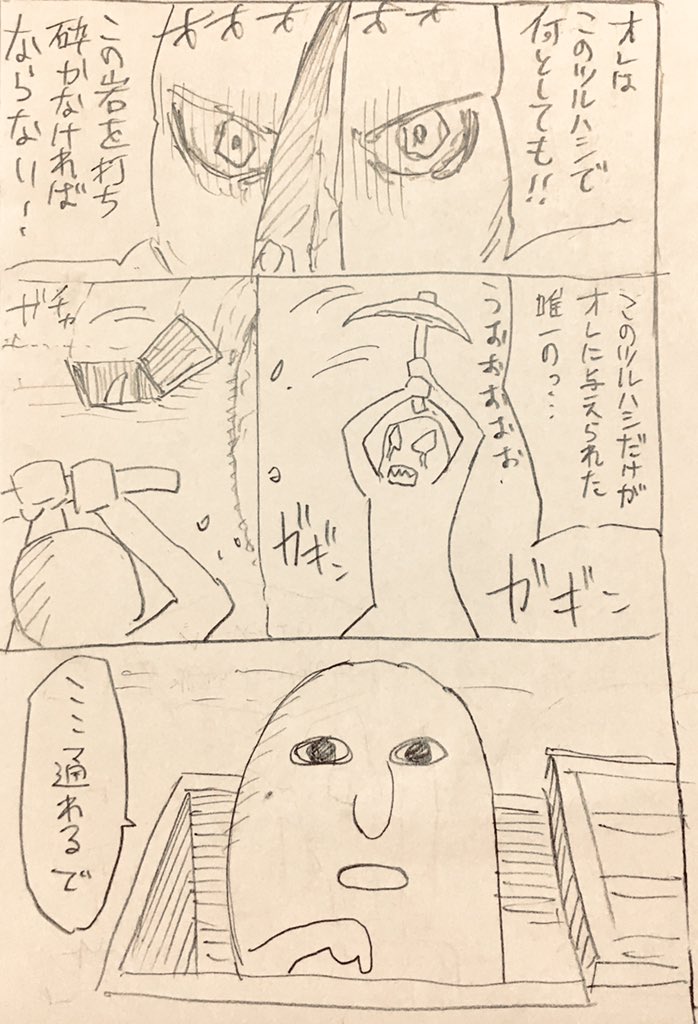 オレは
このツルハシで
何としても!!
ああああ
この岩を打ち
砕かなければ
ならない…
このツルハシだけが
オレに与えられた
唯一のっ…
うおおおおお
ガギン
ガギン
ガチャ
ここ通れるで